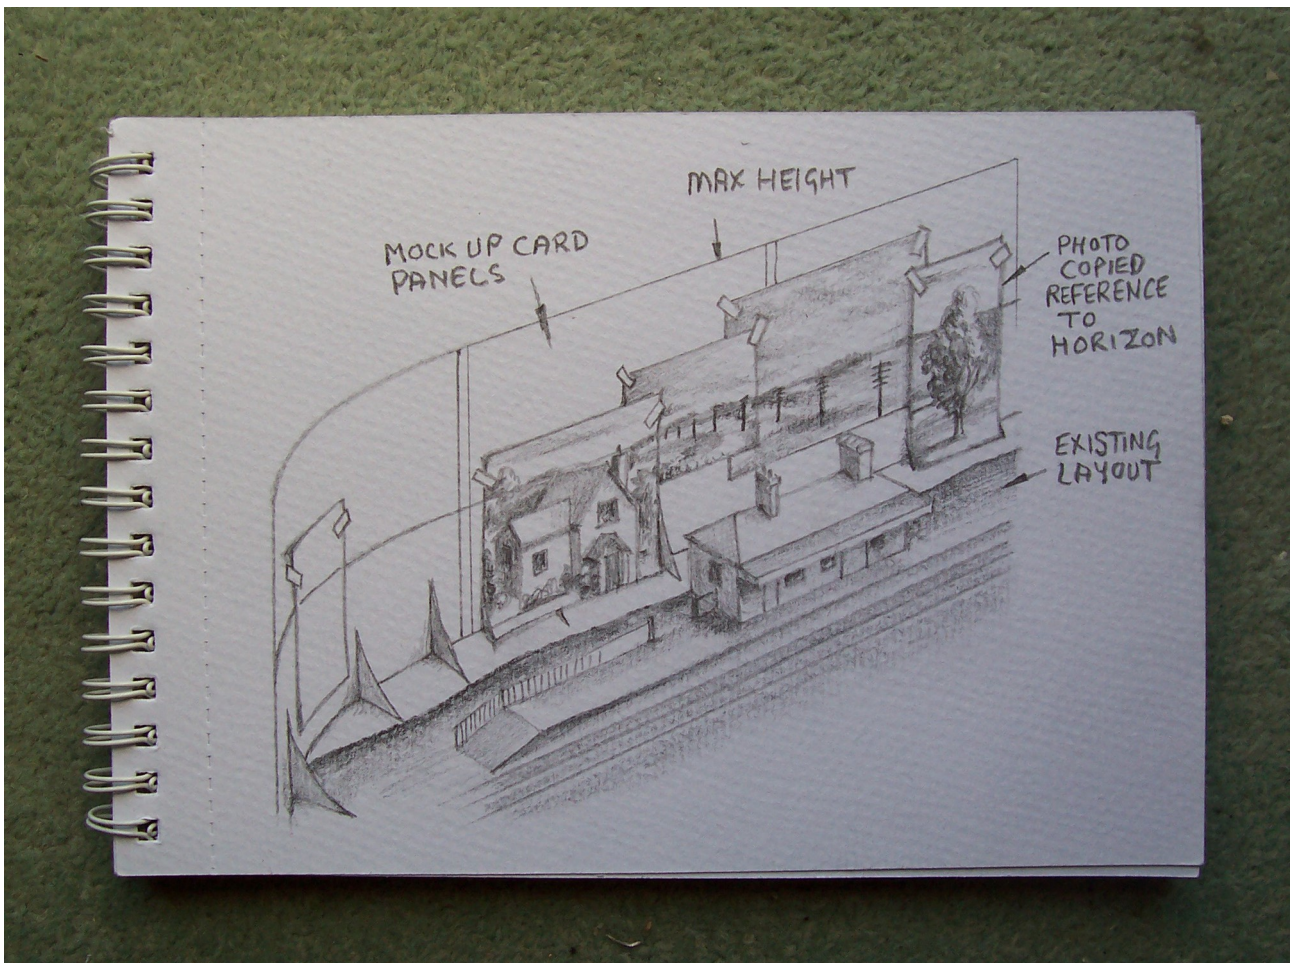 MAX HEIGHT
MOCK UP CARD
PANELS
PHOTO
COPIED
REFERENCE
TO
HORIZON
EXISTING
LAYOUT